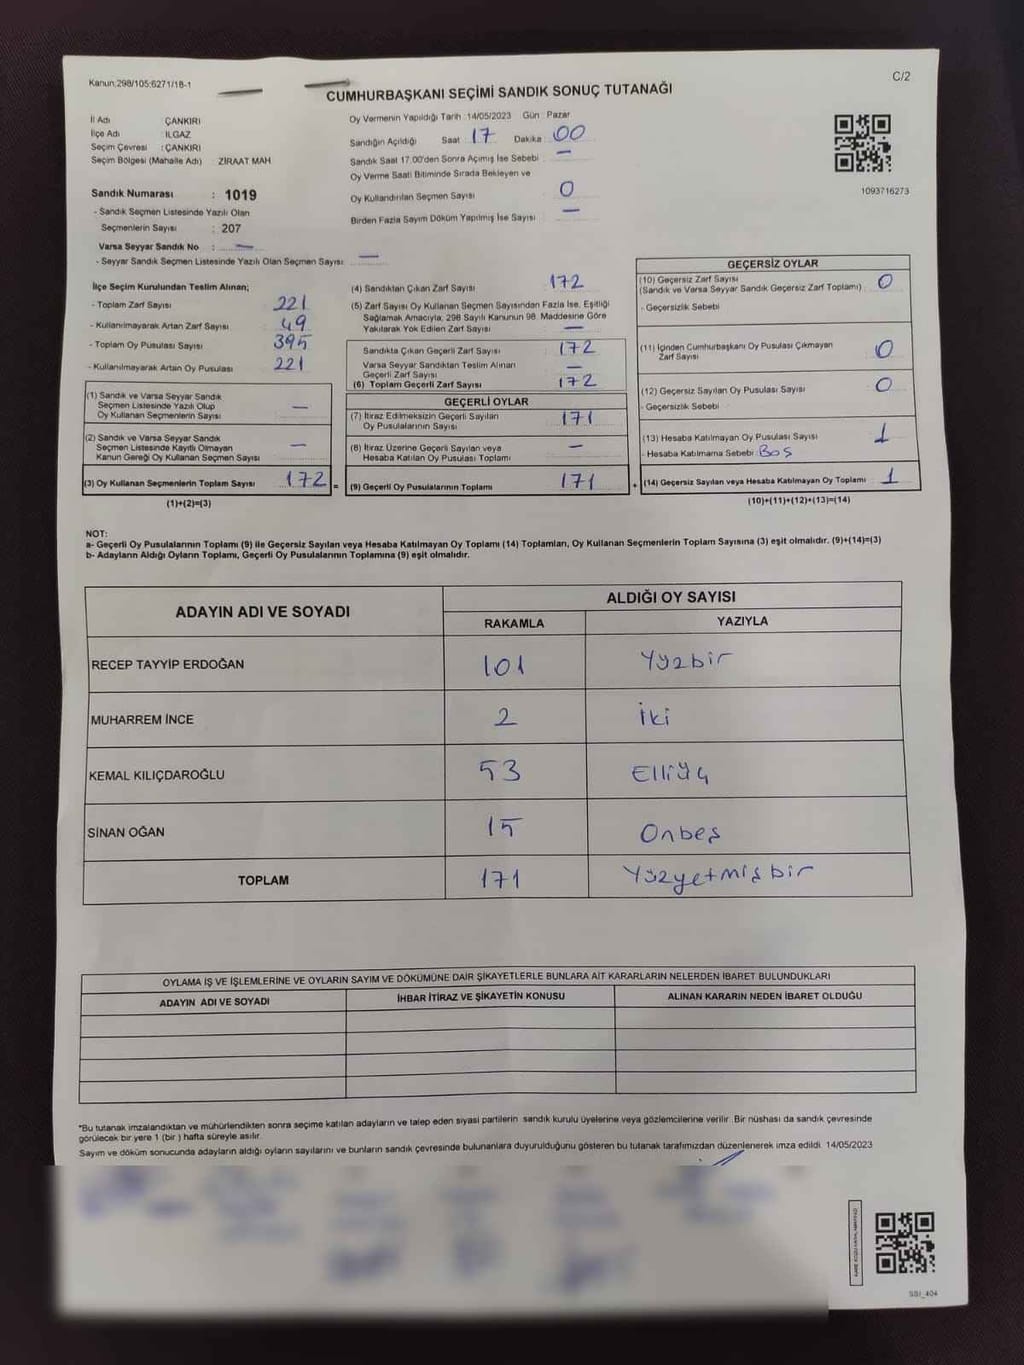 Kanun:298/105:6271/18-1
C/2
CUMHURBAŞKANI SEÇİMİ SANDIK SONUÇ TUTANAĞI
İl Adı ÇANKIRI
İlçe Adı : ILGAZ
Seçim Çevresi : ÇANKIRI
Seçim Bölgesi (Mahalle Adı) : ZIRAAT MAH
Sandık Numarası : 1019
- Sandık Seçmen Listesinde Yazılı Olan
Seçmenlerin Sayısı : 207
Varsa Seyyar Sandık No : —
- Seyyar Sandık Seçmen Listesinde Yazılı Olan Seçmen Sayısı: —
Oy Vermenin Yapıldığı Tarih :14/05/2023 Gün : Pazar
Sandığın Açıldığı Saat 17 Dakika 00
Sandık Saat 17.00'den Sonra Açımış İse Sebebi —
Oy Verme Saati Bitiminde Sırada Bekleyen ve
Oy Kullandırılan Seçmen Sayısı 0
Birden Fazla Sayım Döküm Yapılmış İse Sayısı —
1093716273
İlçe Seçim Kurulundan Teslim Alınan;
- Toplam Zarf Sayısı 221
- Kullanılmayarak Artan Zarf Sayısı 49
- Toplam Oy Pusulası Sayısı 395
- Kullanılmayarak Artan Oy Pusulası 221
(1) Sandık ve Varsa Seyyar Sandık
Seçmen Listesinde Yazılı Olup
Oy Kullanan Seçmenlerin Sayısı —
(2) Sandık ve Varsa Seyyar Sandık
Seçmen Listesinde Kayıtlı Olmayan
Kanun Gereği Oy Kullanan Seçmen Sayısı —
(3) Oy Kullanan Seçmenlerin Toplam Sayısı 172 =
(1)+(2)=(3)
(4) Sandıktan Çıkan Zarf Sayısı 172
(5) Zarf Sayısı Oy Kullanan Seçmen Sayısından Fazla İse, Eşitliği
Sağlamak Amacıyla; 298 Sayılı Kanunun 98. Maddesine Göre
Yakılarak Yok Edilen Zarf Sayısı —
Sandıkta Çıkan Geçerli Zarf Sayısı 172
Varsa Seyyar Sandıktan Teslim Alınan
Geçerli Zarf Sayısı —
(6) Toplam Geçerli Zarf Sayısı 172
GEÇERLİ OYLAR
(7) İtiraz Edilmeksizin Geçerli Sayılan
Oy Pusulalarının Sayısı 171
(8) İtiraz Üzerine Geçerli Sayılan veya
Hesaba Katılan Oy Pusulası Toplamı —
(9) Geçerli Oy Pusulalarının Toplamı 171 +
GEÇERSİZ OYLAR
(10) Geçersiz Zarf Sayısı
(Sandık ve Varsa Seyyar Sandık Geçersiz Zarf Toplamı) 0
- Geçersizlik Sebebi
(11) İçinden Cumhurbaşkanı Oy Pusulası Çıkmayan
Zarf Sayısı 0
(12) Geçersiz Sayılan Oy Pusulası Sayısı 0
- Geçersizlik Sebebi
(13) Hesaba Katılmayan Oy Pusulası Sayısı 1
- Hesaba Katılmama Sebebi Boş
(14) Geçersiz Sayılan veya Hesaba Katılmayan Oy Toplamı 1
(10)+(11)+(12)+(13)=(14)
NOT:
a- Geçerli Oy Pusulalarının Toplamı (9) ile Geçersiz Sayılan veya Hesaba Katılmayan Oy Toplamı (14) Toplamları, Oy Kullanan Seçmenlerin Toplam Sayısına (3) eşit olmalıdır. (9)+(14)=(3)
b- Adayların Aldığı Oyların Toplamı, Geçerli Oy Pusulalarının Toplamına (9) eşit olmalıdır.
ADAYIN ADI VE SOYADI
ALDIĞI OY SAYISI
RAKAMLA YAZIYLA
RECEP TAYYİP ERDOĞAN 101 Yüzbir
MUHARREM İNCE 2 İki
KEMAL KILIÇDAROĞLU 53 Elliüç
SİNAN OĞAN 15 Onbeş
TOPLAM 171 Yüzyetmişbir
OYLAMA İŞ VE İŞLEMLERİNE VE OYLARIN SAYIM VE DÖKÜMÜNE DAİR ŞİKAYETLERLE BUNLARA AİT KARARLARIN NELERDEN İBARET BULUNDUKLARI
ADAYIN ADI VE SOYADI İHBAR İTİRAZ VE ŞİKAYETİN KONUSU ALINAN KARARIN NEDEN İBARET OLDUĞU
*Bu tutanak imzalandıktan ve mühürlendikten sonra seçime katılan adayların ve talep eden siyasi partilerin sandık kurulu üyelerine veya gözlemcilerine verilir. Bir nüshası da sandık çevresinde
görülecek bir yere 1 (bir ) hafta süreyle asılır.
Sayım ve döküm sonucunda adayların aldığı oyların sayılarını ve bunların sandık çevresinde bulunanlara duyurulduğunu gösteren bu tutanak tarafımızdan düzenlenerek imza edildi. 14/05/2023
SSI_404